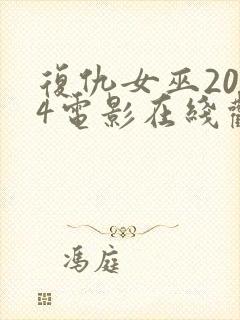 復仇女巫20
4電影在綫
馮庭